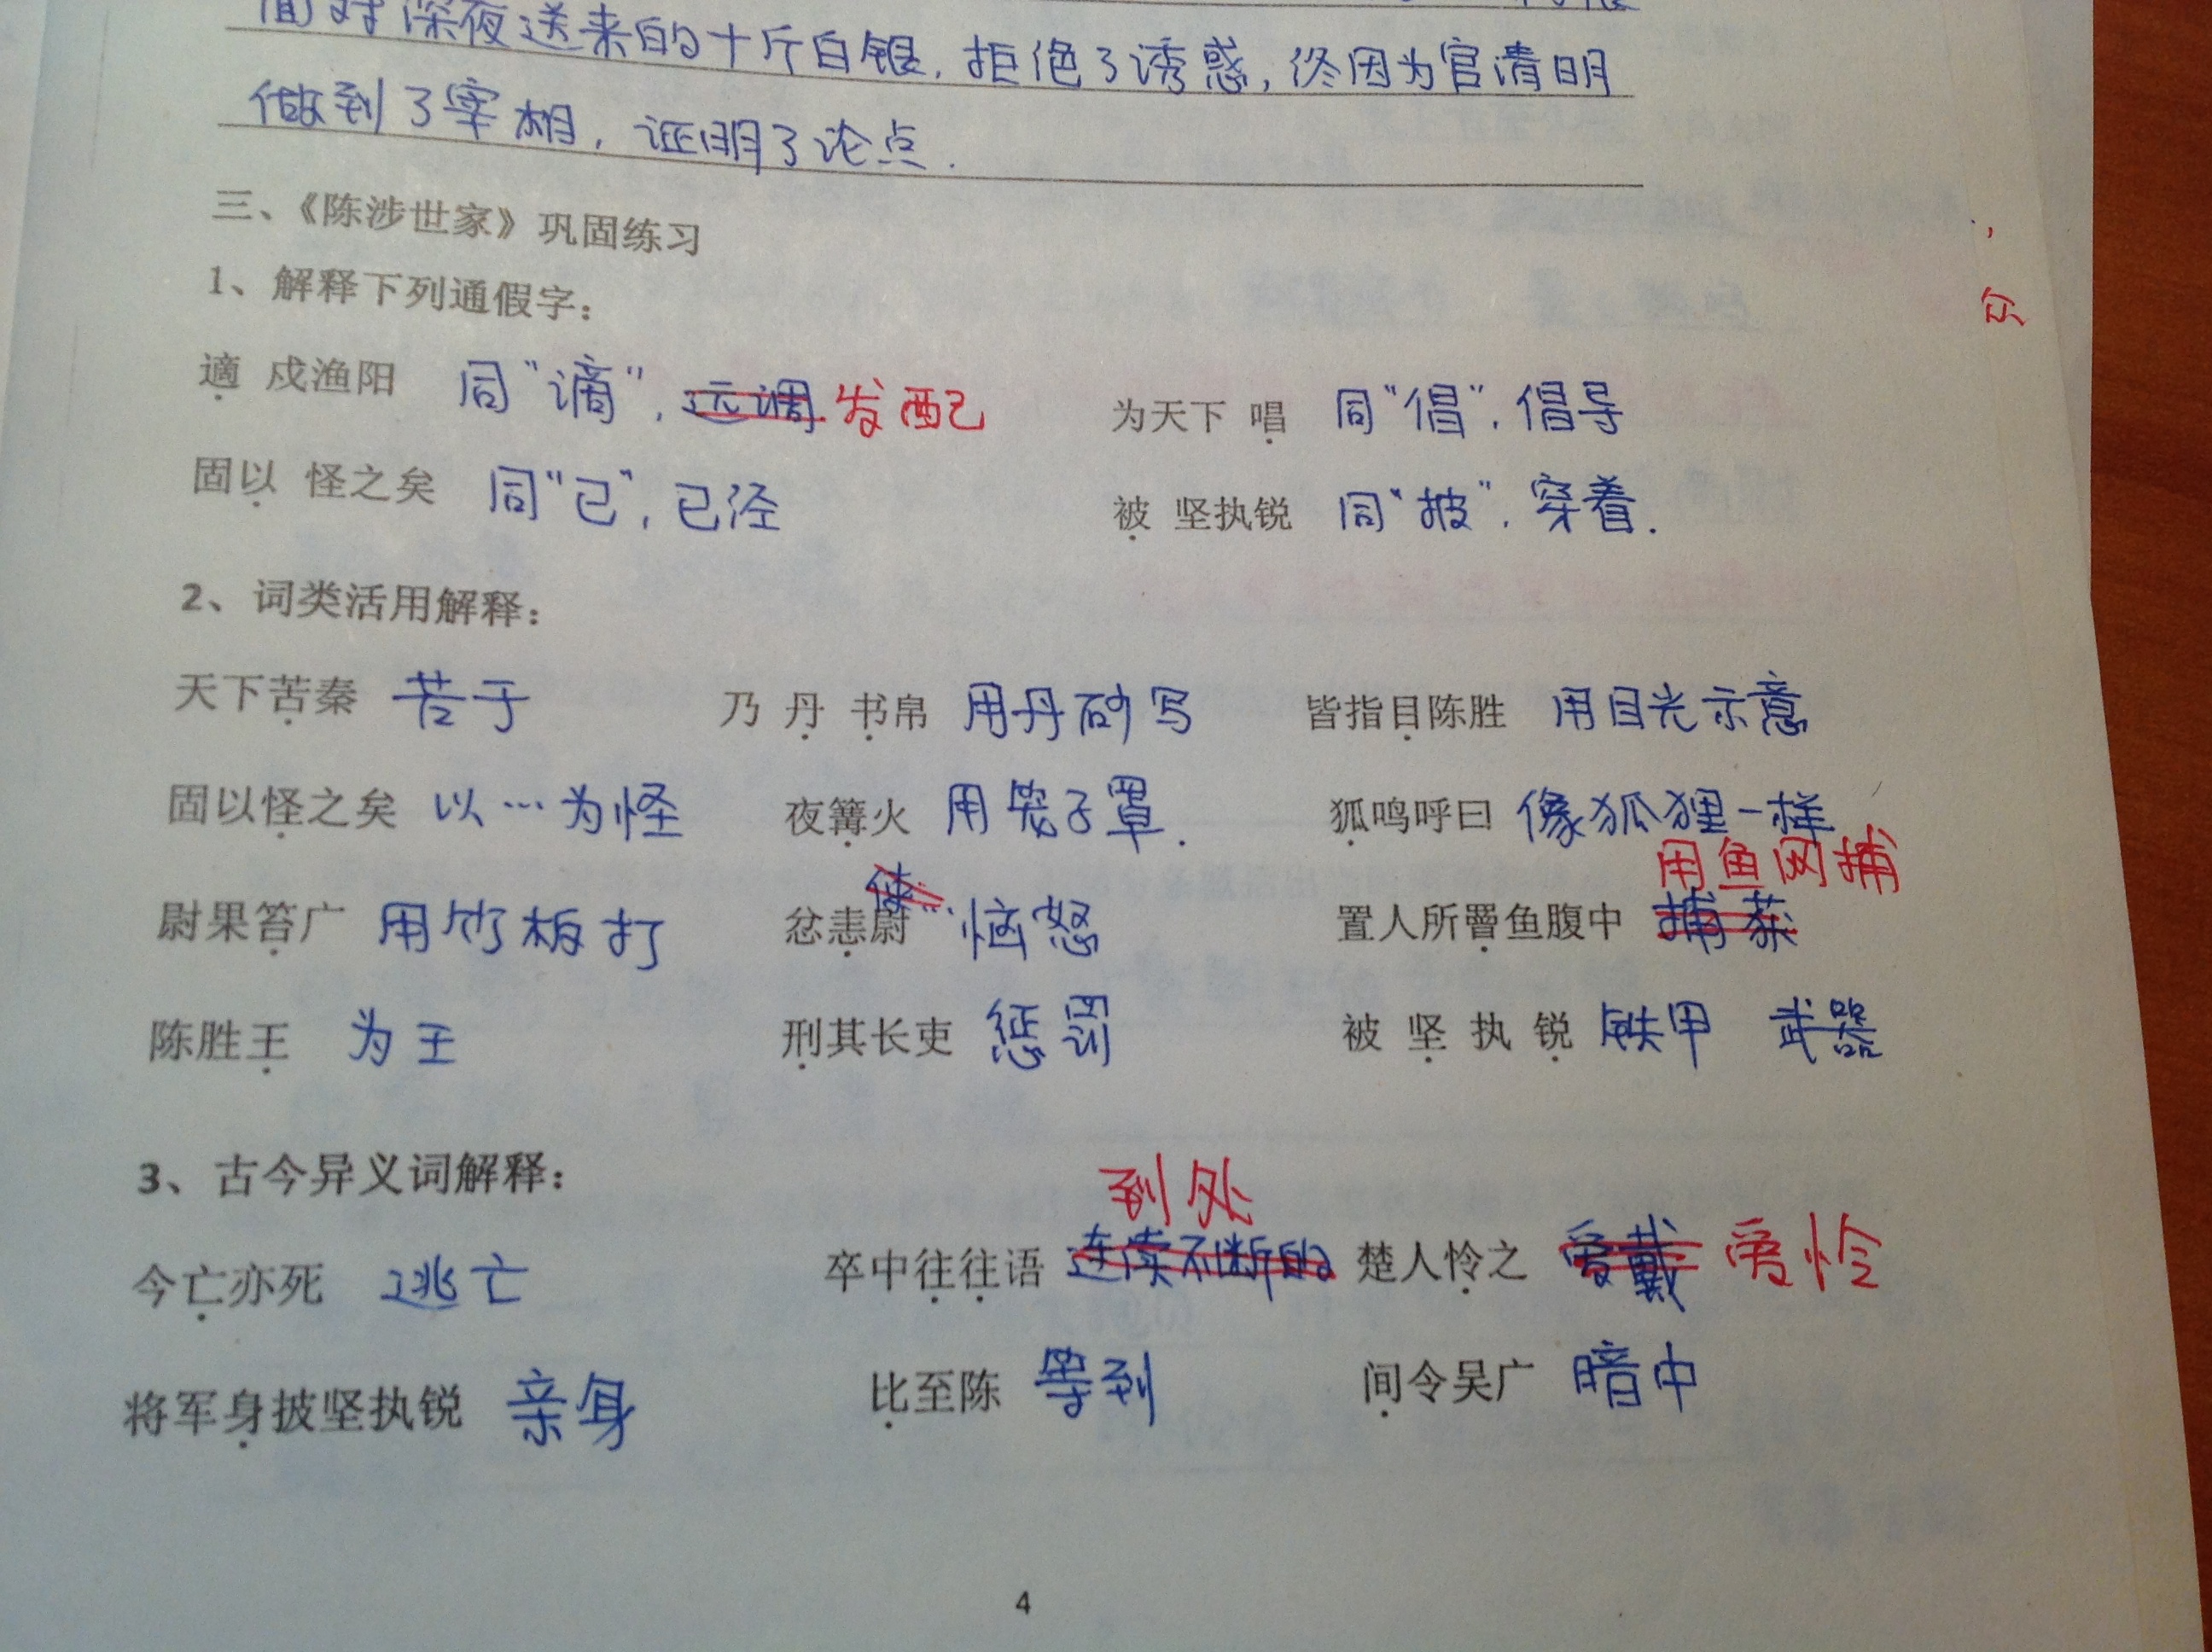 面对深夜送来的十斤白银，拒绝了诱惑，终因为官清明
做到了宰相，证明了论点.
三、《陈涉世家》巩固练习
1、解释下列通假字：
適 戍渔阳 同“谪”，远调 发配 为天下 唱 同“倡”，倡导
固以 怪之矣 同“已”，已经 被 坚执锐 同“披”，穿着.
2、词类活用解释：
天下苦秦 苦于 乃 丹 书帛 用丹砂写 皆指目陈胜 用目光示意
固以怪之矣 以…为怪 夜篝火 用笼子罩. 狐鸣呼曰 像狐狸一样
用鱼网捕
尉果笞广 用竹板打 忿恚尉 使…恼怒 置人所罾鱼腹中 捕
陈胜王 为王 刑其长吏 惩罚 被 坚 执 锐 铁甲 武器
3、古今异义词解释：
到处
今亡亦死 逃亡 卒中往往语 连续不断的 楚人怜之 爱戴 爱怜
将军身披坚执锐 亲身 比至陈 等到 间令吴广 暗中
4